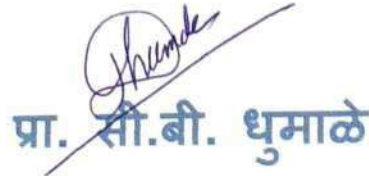 प्रा. सी.बी. धुमाळे